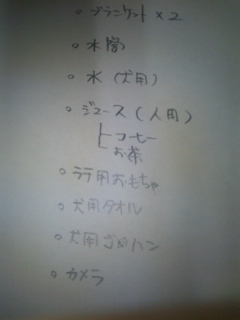 。ブランケット×2
。水筒
。水(犬用)
。ジュース(人用)
コーヒー
お茶
。ララ用おもちゃ
。犬用タオル
。犬用ごはん
。カメラ